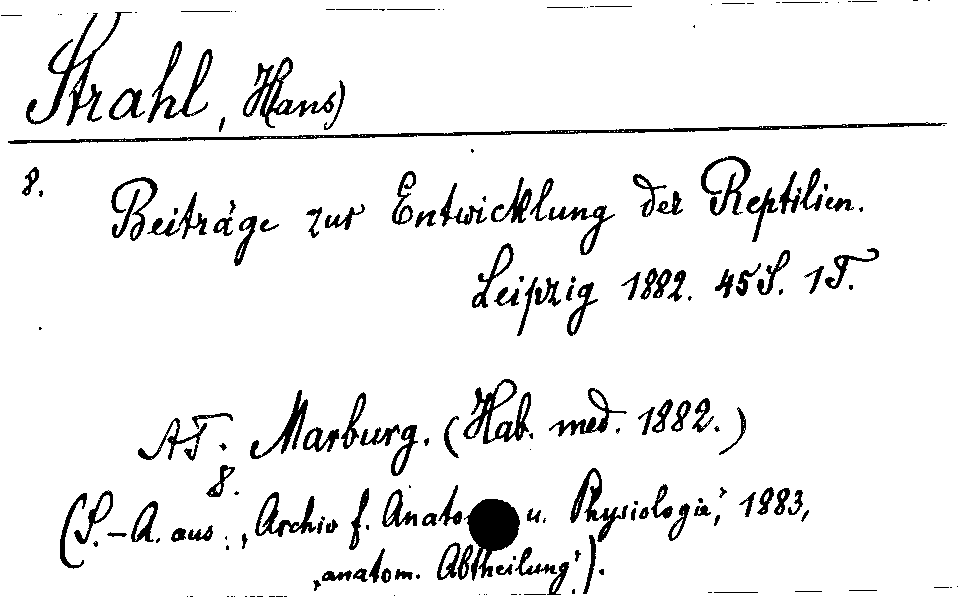 Strahl, Hans)
8.
Beiträge zur Entwicklung der Reptilien.
Leipzig 1882. 45 S. 1 T.
AT. Marburg. (Hab. med. 1882.)
8.
(S.-A. aus: 'Archiv f. Anato u. Physiologie', 1883,
'anatom. Abtheilung').